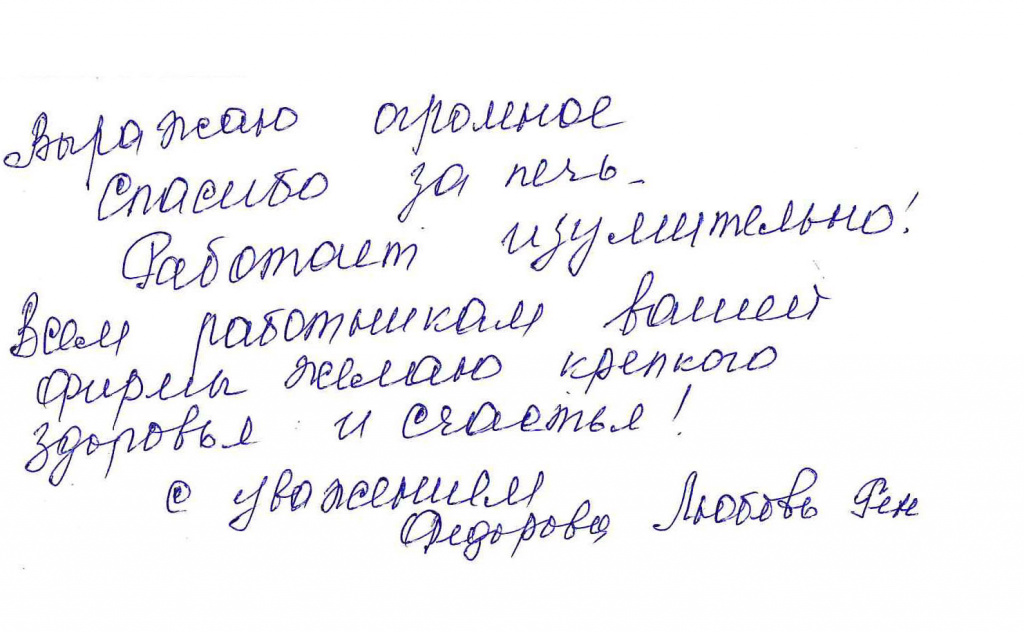 Выражаю огромное
Спасибо за печь.
Работает изумительно!
Всем работникам вашей
фирмы желаю крепкого
здоровья и счастья!
с уважением
Федорова Любовь Ген